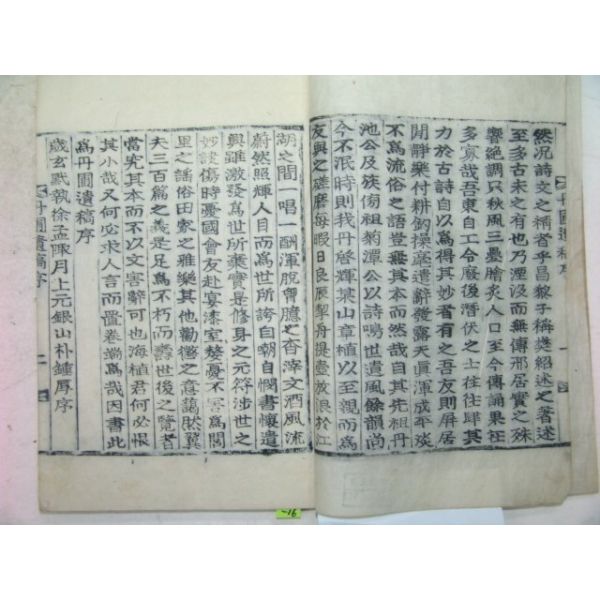 然況詩文之稱者乎昌黎子稱樊紹述之著述
至多古未之有也乃湮沒而無傳邢居實之殊
響絶調只秋風三疊膾炙人口至今傳誦果在
多寡哉吾東自工令廢後潛伏之士往往肆其
力於古詩自以爲得其妙者有之吾友則屏居
閒靜藥付耕釣操毫遣辭發露天眞渾成平淡
不爲流俗之語豈無其本而然哉自其先祖丹
池公及族傍祖菊潭公以詩鳴世遺風餘韻尚
今不泯時則我丹啓輝某山章植以至親而爲
友與之磋磨每暇日良辰挈舟提壺放浪於江
湖之間一唱一酬渾脫胷臆之杳滓文酒風流
蔚然照輝人目而爲世所誇自嘲自憫書懷遣
興雖激發爲世所棄實是修身之元符涉世之
妙諦傷時憂國會友赴宴漆室嫠憂不害爲閭
里之謠俗田家之雅樂其他勸懲之意藹然冀
夫三百篇之義是足爲不朽而壽世後之覽者
當究其本而不以文害辭可也海植君何必恨
其小哉又何必求人言而置卷端爲哉因書此
爲丹圃遺稿序
歲玄黓執徐孟陬月上元銀山朴鍾厚序
丹圃遺稿序
一
丹圃遺稿序
二
-16